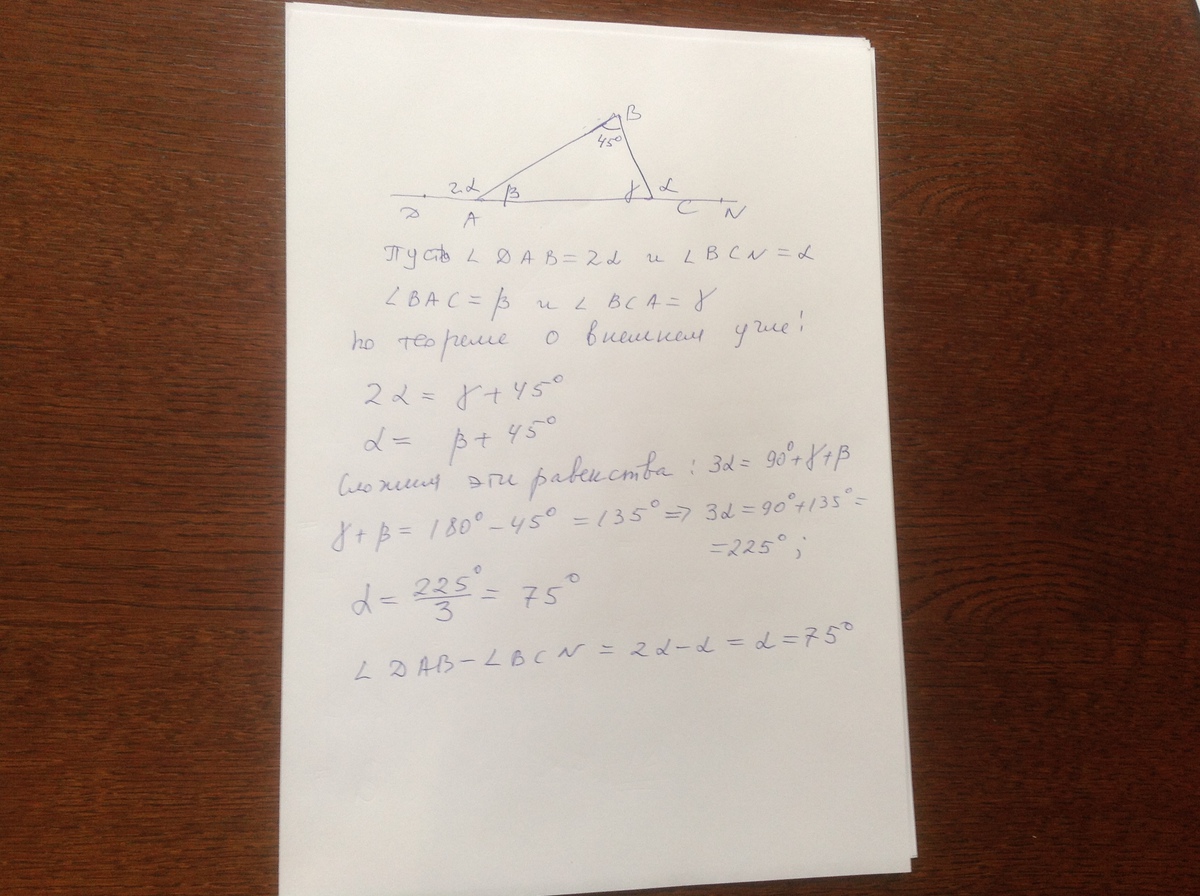 B
45°
2α β γ α
D A C N
Пусть ∠DAB = 2α и ∠BCN = α
∠BAC = β и ∠BCA = γ
по теореме о внешнем угле:
2α = γ + 45°
α = β + 45°
Сложим эти равенства: 3α = 90° + γ + β
γ + β = 180° - 45° = 135° ⇒ 3α = 90° + 135° =
= 225° ;
α = 225°/3 = 75°
∠DAB - ∠BCN = 2α - α = α = 75°